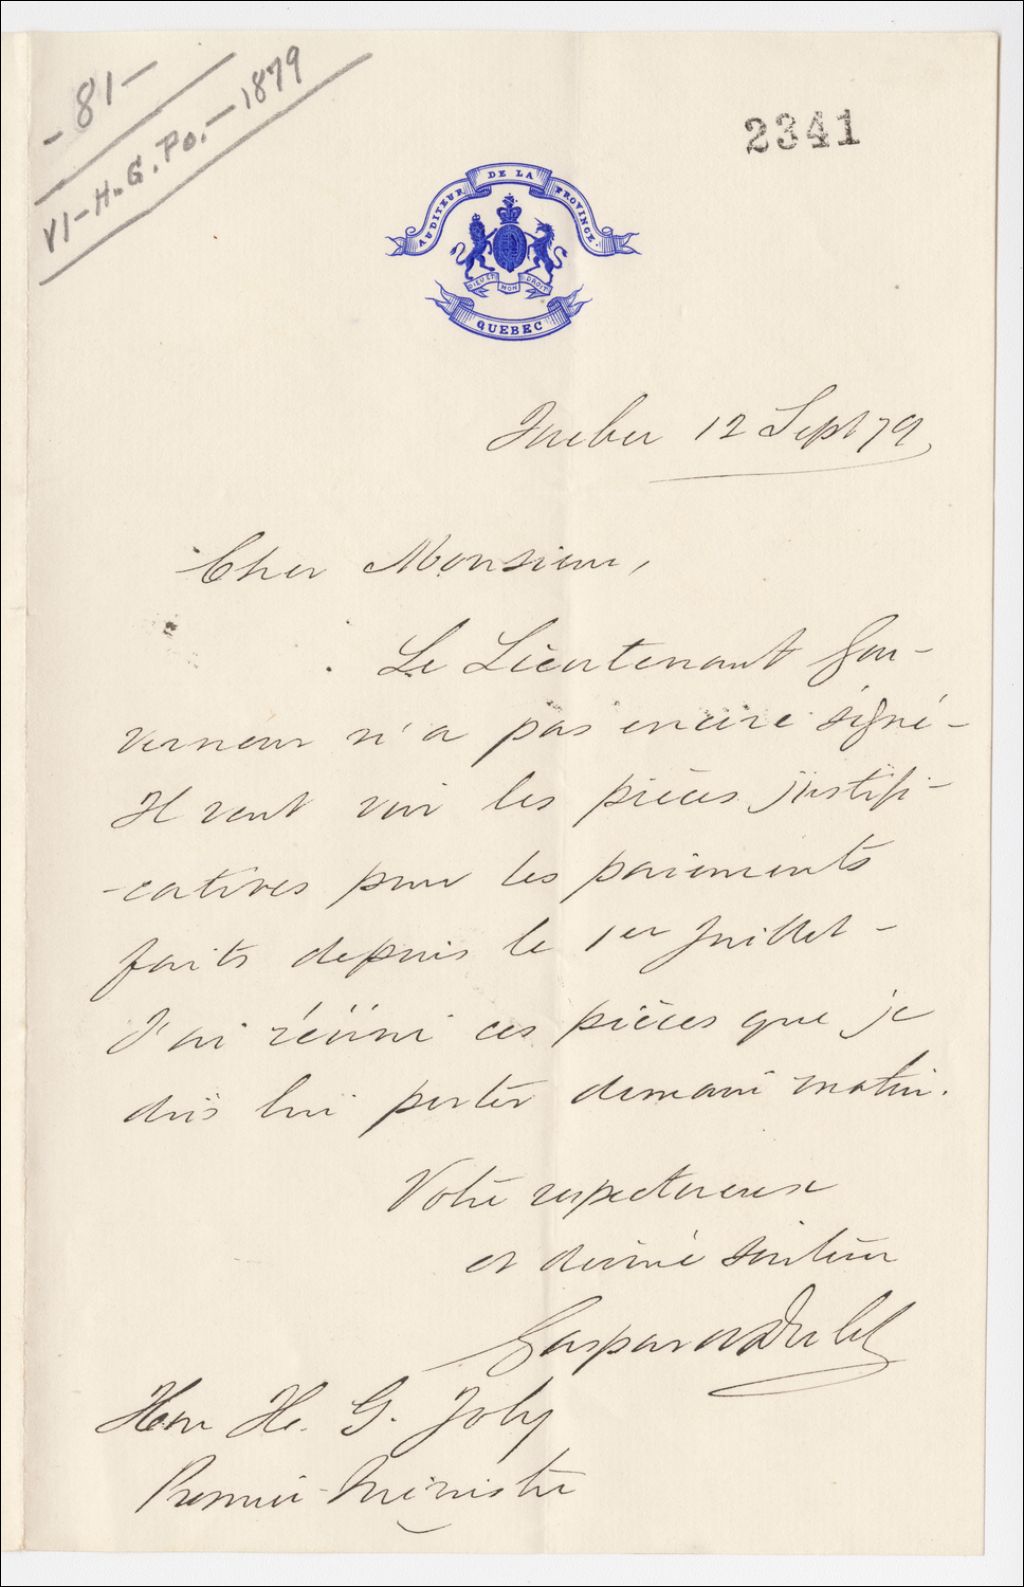 -81-
VI-H.G.Po.-1879
2341
AUDITEUR DE LA PROVINCE.
DIEU ET MON DROIT
QUEBEC
Quebec 12 Sept 79
Cher Monsieur,
Le Lieutenant Gou-
verneur n'a pas encore signé-
Il veut voir les pièces justifi-
-catives pour les paiements
faits depuis le 1er Juillet-
J'ai réuni ces pièces que je
dois lui porter demain matin.
Votre respectueux
et dévoué serviteur
Gaspard Drolet
Hon H. G. Joly
Premier-Ministre